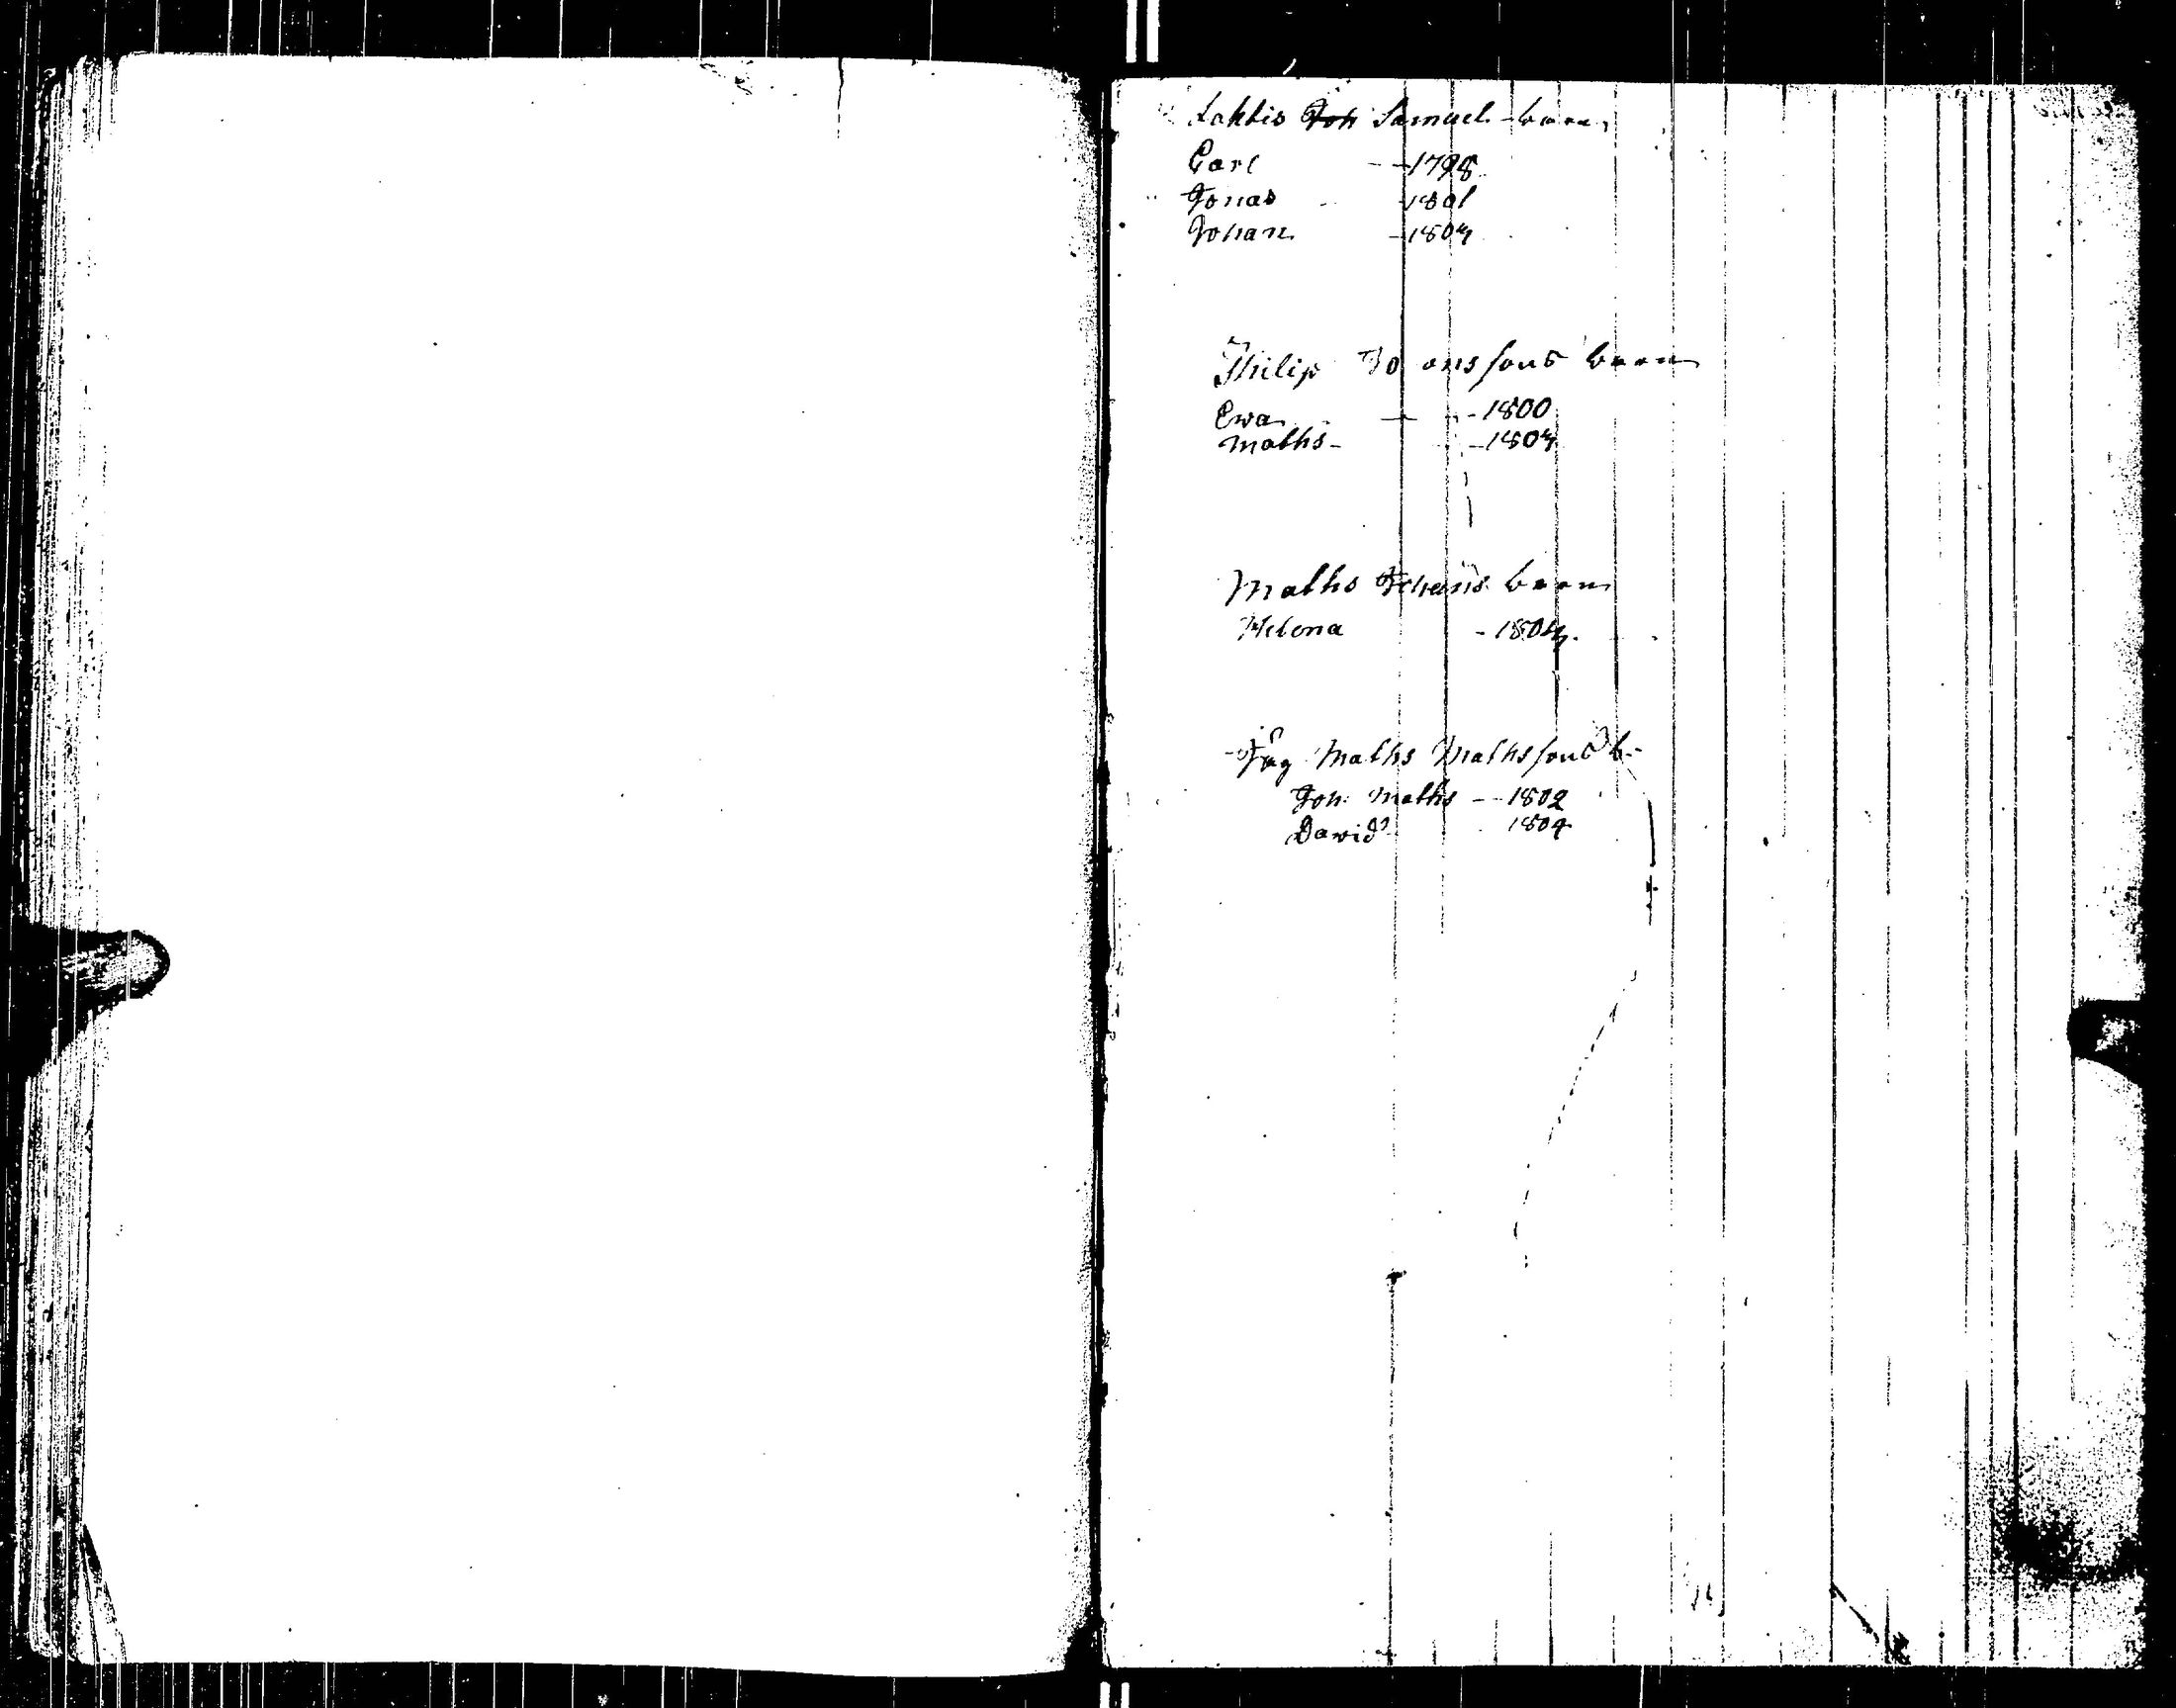 Lahtis Joh Samuel barn
Carl - - 1798
Jonas - 1801
Johan - 1804
Philip Jo ons sons barn
Ewa - - 1800
Maths - - 1804
Maths Johans barn
Helena - 1804.
Maths Mathssons b-
Joh: Maths - - 1802
David 1804